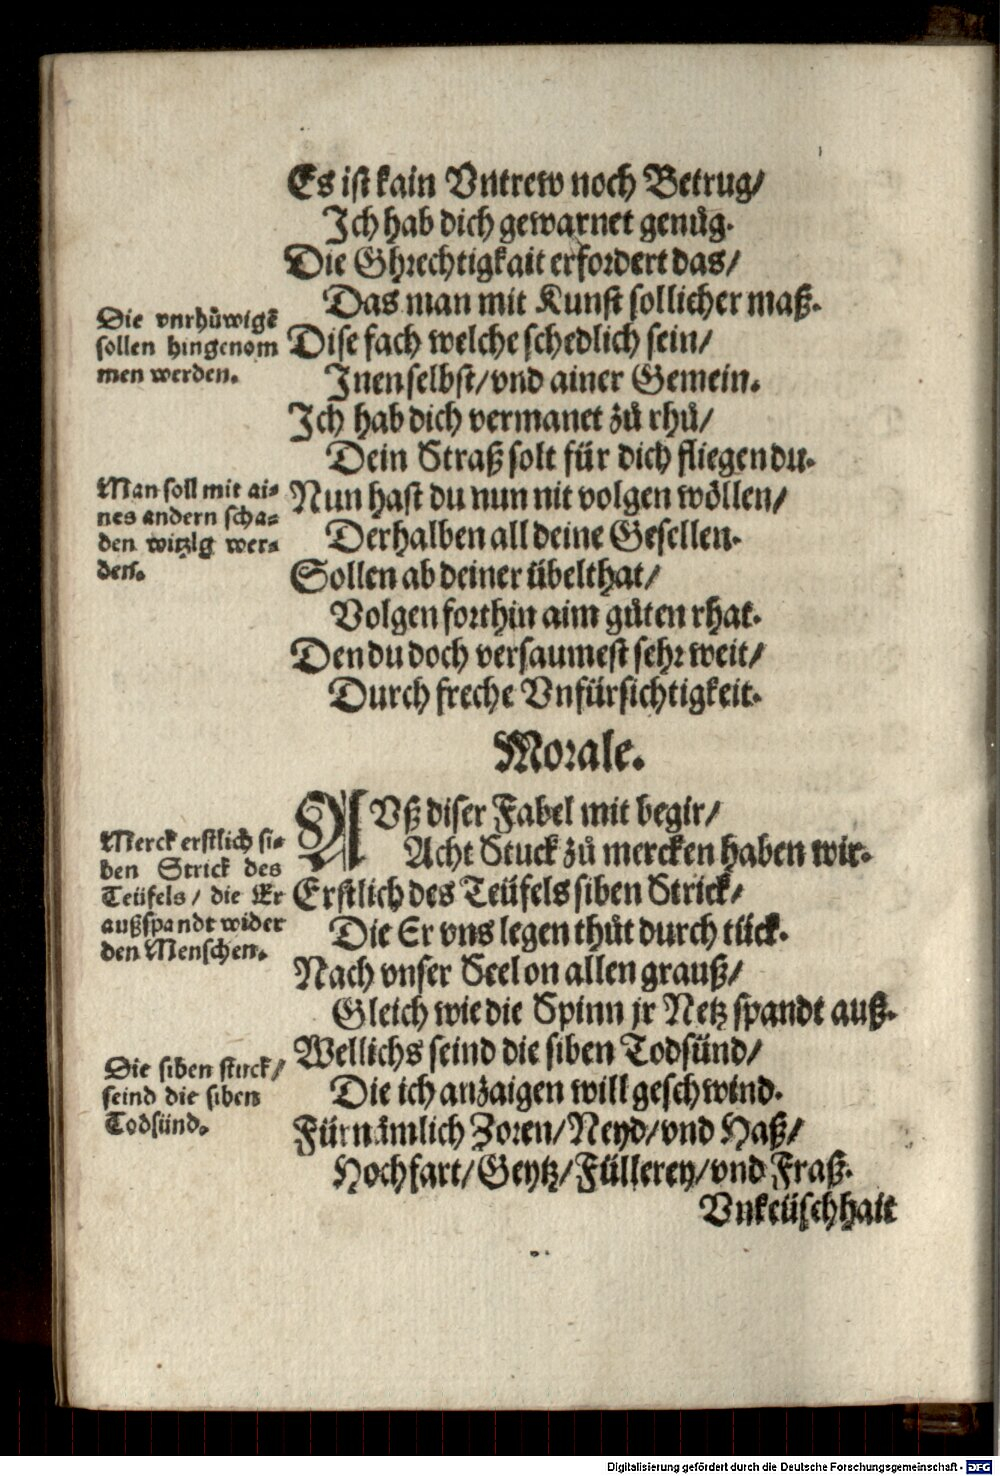 Es ist kain Vntrew noch Betrug/
Ich hab dich gewarnet genůg.
Die Ghrechtigkait erfordert das/
Das man mit Kunst sollicher maß.
Die vnrhůwigẽ
sollen hingenom
men werden.
Dise fach welche schedlich sein/
Inen selbst/ vnd ainer Gemein.
Ich hab dich vermanet zů rhů/
Dein Straß solt für dich fliegen du.
Man soll mit ai⸗
nes andern scha⸗
den witzig wer⸗
den.
Nun hast du nun nit volgen wöllen/
Derhalben all deine Gesellen.
Sollen ab deiner übelthat/
Volgen forthin aim gůten rhat.
Den du doch versaumest sehr weit/
Durch freche Vnfürsichtigkeit.
Morale.
AVß diser Fabel mit begir/
Acht Stuck zů mercken haben wir.
Merck erstlich si⸗
ben Strick des
Teüfels/ die Er
außspandt wider
den Menschen.
Erstlich des Teüfels siben Strick/
Die Er vns legen thůt durch tück.
Nach vnser Seel on allen grauß/
Gleich wie die Spinn jr Netz spandt auß.
Die siben strick/
seind die siben
Todsünd.
Wellichs seind die siben Todsünd/
Die ich anzaigen will geschwind.
Fürnämlich Zoren/ Neyd/ vnd Haß/
Hochfart/ Geytz/ Füllerey/ vnd Fraß.
Vnkeüschhait
Digitalisierung gefördert durch die Deutsche Forschungsgemeinschaft - DFG